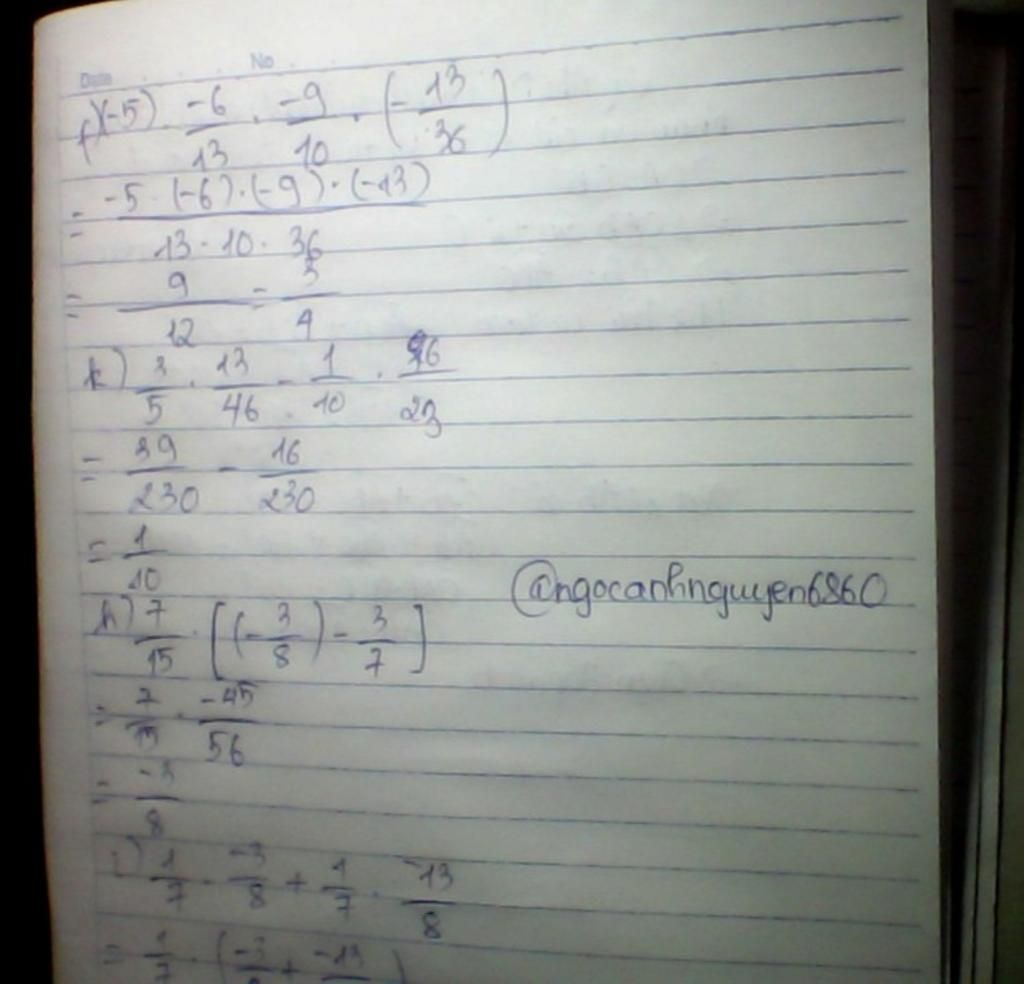 Date No
f) (-5) · -6/13 · -9/10 · (-13/36)
= -5 · (-6) · (-9) · (-13) / 13 · 10 · 36
= 9/12 = 3/4
k) 3/5 · 13/46 - 1/10 · 16/23
= 39/230 - 16/230
= 1/10
@ngocanhnguyen6860
h) 7/15 · [(-3/8) - 3/7]
= 7/15 · -45/56
= -3/8
i) 1/7 · -3/8 + 1/7 · -13/8
= 1/7 · (-3/8 + -13